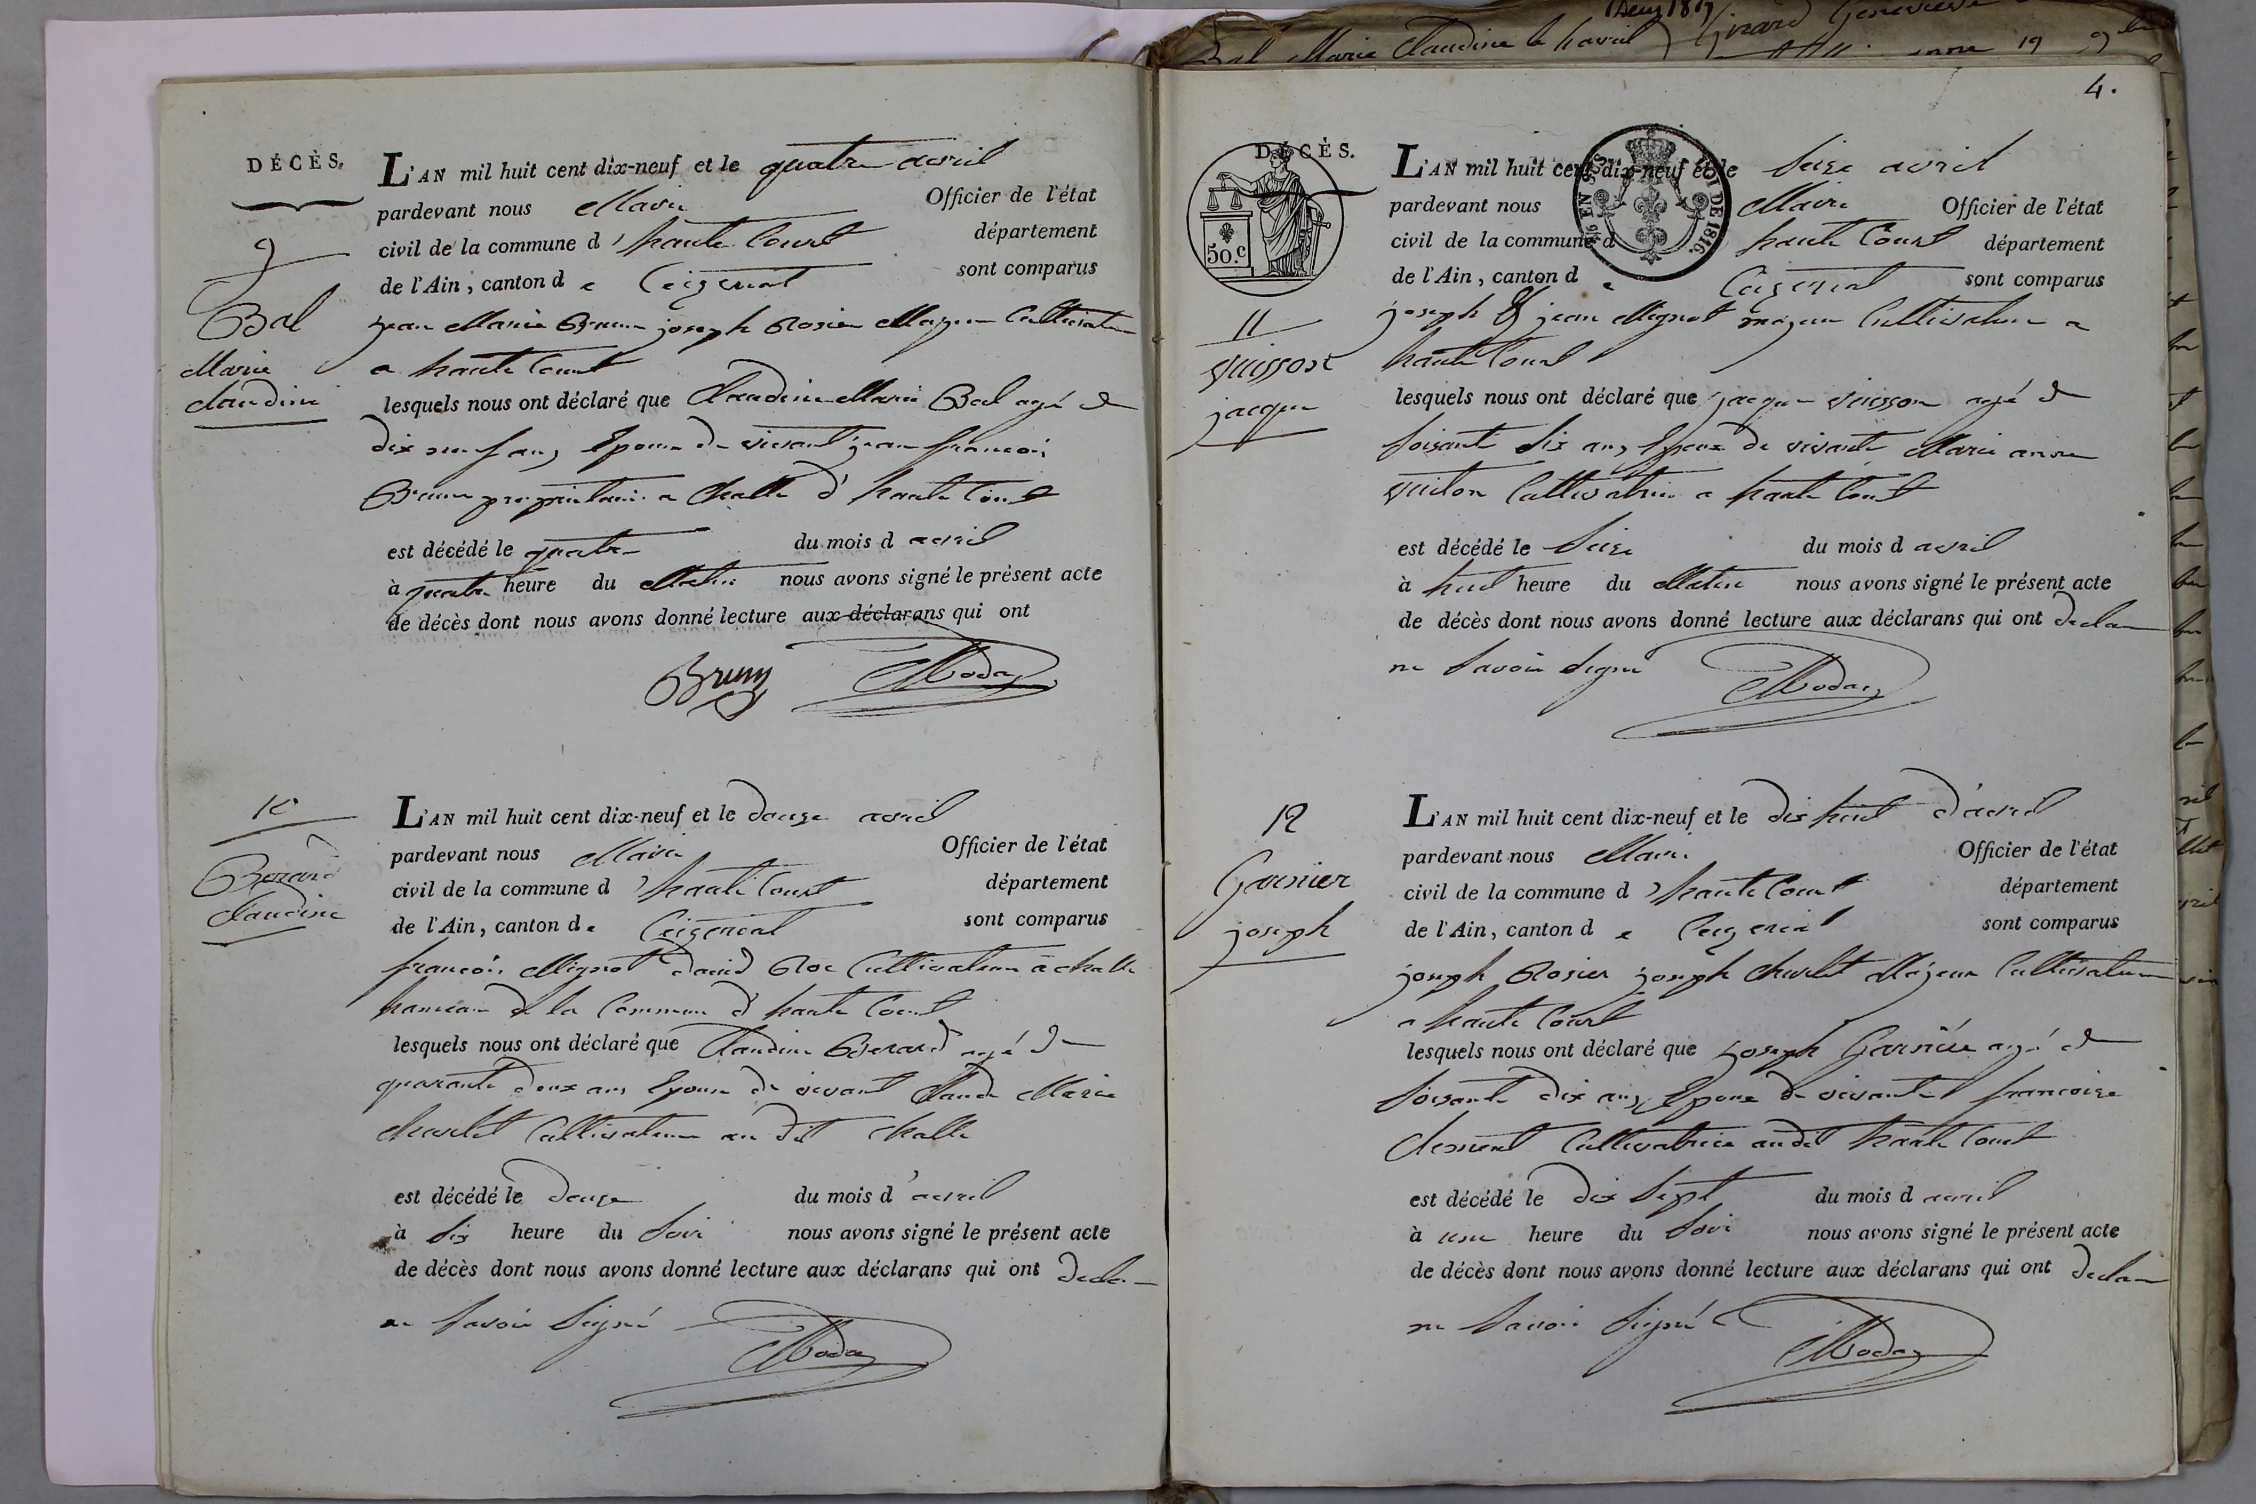 Aeuz 1819
Bal Marie Claudine le 4 avril
Girard Genevieve
19 9
DÉCÈS.
L'AN mil huit cent dix-neuf et le quatre avril
pardevant nous Maire Officier de l'état
civil de la commune d' haute Court département
de l'Ain, canton de Ceizeriat sont comparus
jean Marie Brun joseph Rosier Majeur Cultivateur
a haute Court
9
Bal
Marie
claudine
lesquels nous ont déclaré que Claudine Marie Bal agé de
dix neuf ans Epouse de vivant jean francois
Brun proprietaire a Challe d' haute Court
est décédé le quatre du mois d avril
à quatre heure du Matin nous avons signé le présent acte
de décès dont nous avons donné lecture aux déclarans qui ont
Brun Moday
10
Berard
Claudine
L'AN mil huit cent dix-neuf et le douze avril
pardevant nous Maire Officier de l'état
civil de la commune d' haute Court département
de l'Ain, canton de Ceizeriat sont comparus
francois Mignot david Roc Cultivateur a challe
hameau de la Commune d' haute Court
lesquels nous ont déclaré que Claudine Berard agé de
quarante deux ans Epouse de vivant Claude Marie
charlet Cultivateur au dit challe
est décédé le douze du mois d' avril
à six heure du soir nous avons signé le présent acte
de décès dont nous avons donné lecture aux déclarans qui ont declare
ne savoir signé
Moday
4.
DÉCÈS.
50.C
LOI DE 1816.
L'AN mil huit cent dix-neuf et le seize avril
pardevant nous Maire Officier de l'état
civil de la commune d haute Court département
de l'Ain, canton de Ceizeriat sont comparus
joseph & jean Mignot majeur Cultivateur a
haute Court
11
vuisson
jacque
lesquels nous ont déclaré que jacque vuisson agé de
soisante dix ans Epoux de vivante Marie anne
vuiton Cultivatrice a haute Court
est décédé le seize du mois d avril
à huit heure du Matin nous avons signé le présent acte
de décès dont nous avons donné lecture aux déclarans qui ont declare
ne savoir signé
Moday
12
Garnier
joseph
L'AN mil huit cent dix-neuf et le dix huit d'avril
pardevant nous Maire Officier de l'état
civil de la commune d' haute Court département
de l'Ain, canton de Ceizeriat sont comparus
joseph Rosier joseph charlet Majeur Cultivateur
a haute Court
lesquels nous ont déclaré que joseph Garnier agé de
soisante dix ans Epoux de vivante francoise
clement Cultivatrice audit haute Court
est décédé le dix sept du mois d avril
à une heure du soir nous avons signé le présent acte
de décès dont nous avons donné lecture aux déclarans qui ont declare
ne savoir signé
Moday